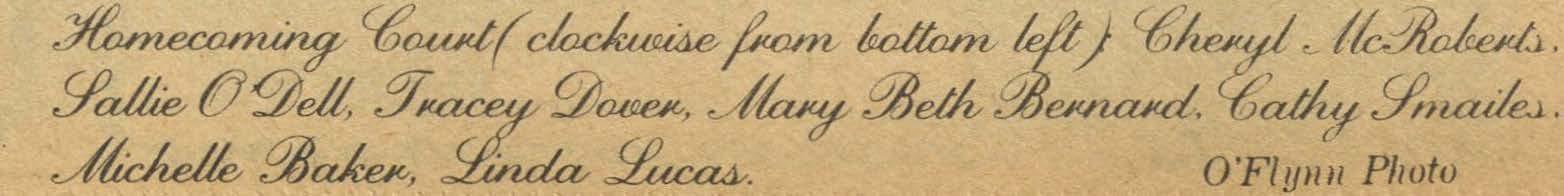 Homecoming Court (clockwise from bottom left): Cheryl McRoberts,
Sallie O'Dell, Tracey Dover, Mary Beth Bernard, Cathy Smailes,
Michelle Baker, Linda Lucas. O'Flynn Photo